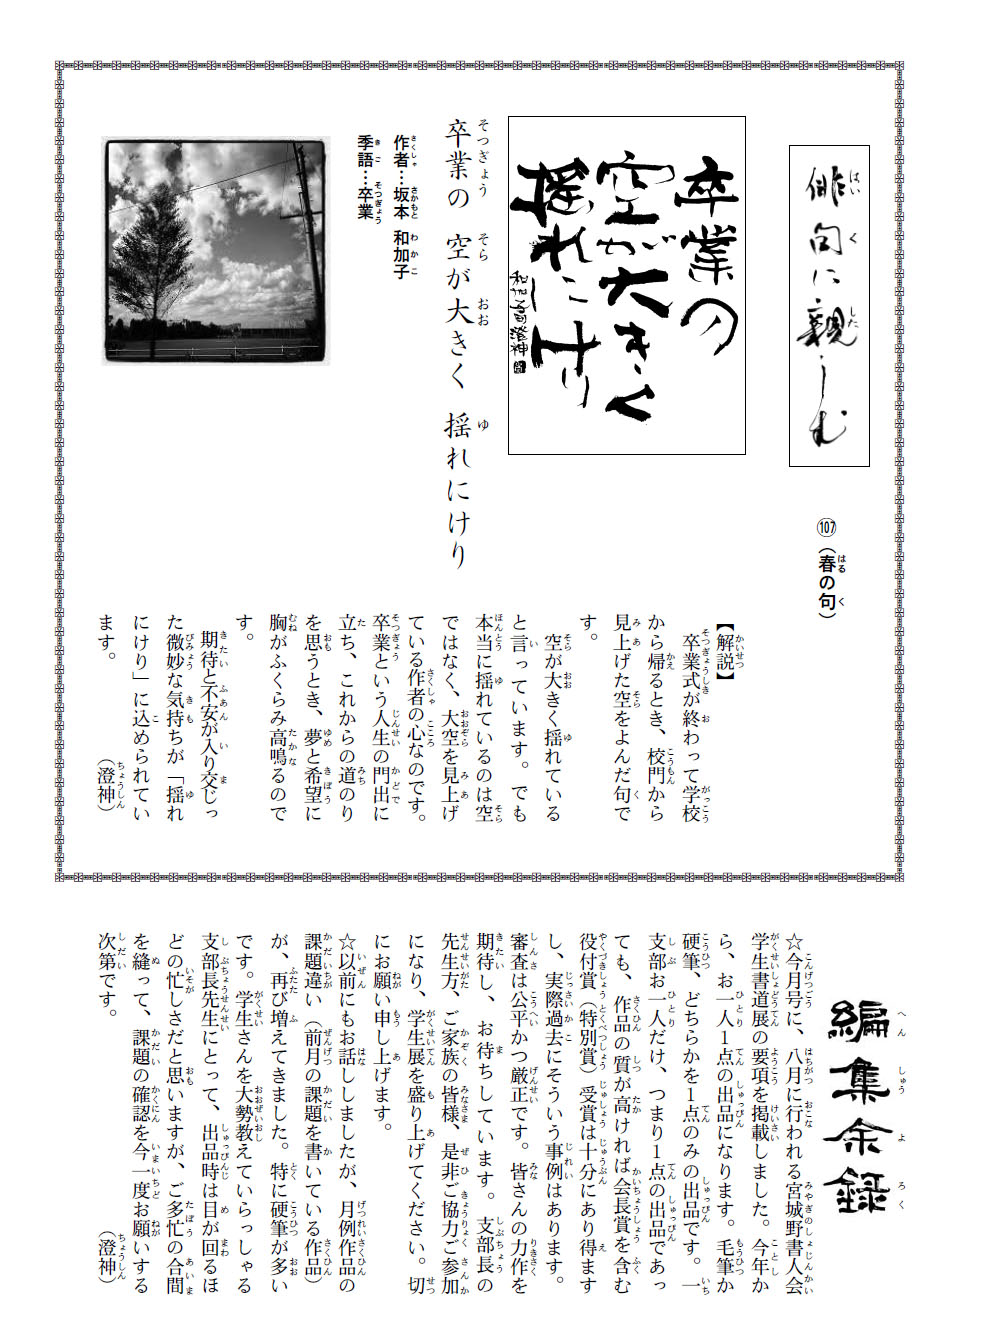 俳句に親しむ
⑩⑦(春の句)
卒業の
空が大きく
揺れにけり
和加子句 澄神
卒業の 空が大きく 揺れにけり
作者…坂本 和加子
季語…卒業
【解説】
卒業式が終わって学校
から帰るとき、校門から
見上げた空をよんだ句で
す。
空が大きく揺れている
と言っています。でも
本当に揺れているのは空
ではなく、大空を見上げ
ている作者の心なのです。
卒業という人生の門出に
立ち、これからの道のり
を思うとき、夢と希望に
胸がふくらみ高鳴るので
す。
期待と不安が入り交じっ
た微妙な気持ちが「揺れ
にけり」に込められてい
ます。
(澄神)
編集余録
☆今月号に、八月に行われる宮城野書人会
学生書道展の要項を掲載しました。今年か
ら、お一人１点の出品になります。毛筆か
硬筆、どちらかを１点のみの出品です。一
支部お一人だけ、つまり１点の出品であっ
ても、作品の質が高ければ会長賞を含む
役付賞(特別賞)受賞は十分にあり得ます
し、実際過去にそういう事例はあります。
審査は公平かつ厳正です。皆さんの力作を
期待し、お待ちしています。支部長の
先生方、ご家族の皆様、是非ご協力ご参加
になり、学生展を盛り上げてください。切
にお願い申し上げます。
☆以前にもお話ししましたが、月例作品の
課題違い(前月の課題を書いている作品)
が、再び増えてきました。特に硬筆が多い
です。学生さんを大勢教えていらっしゃる
支部長先生にとって、出品時は目が回るほ
どの忙しさだと思いますが、ご多忙の合間
を縫って、課題の確認を今一度お願いする
次第です。
(澄神)